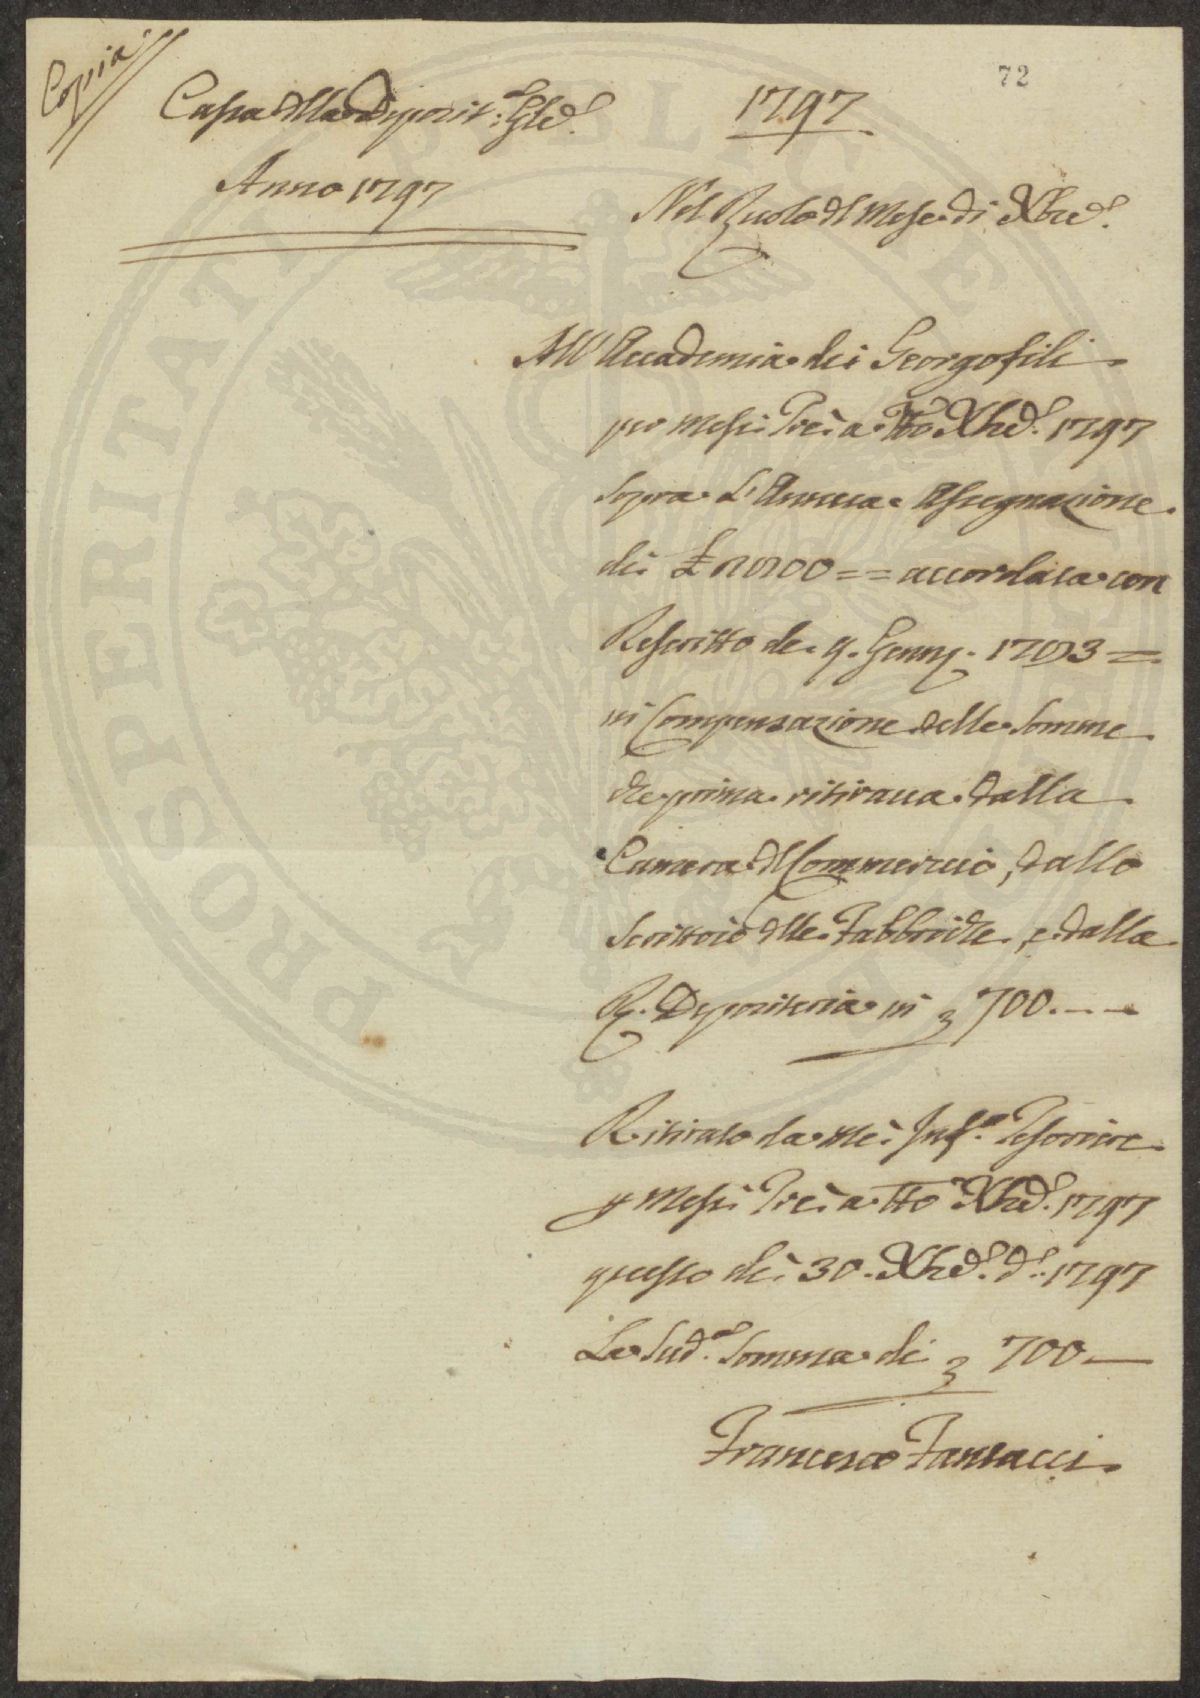 Copia
72
Cassa della Deposit: Gle.
Anno 1797
1797
Nel Ruolo del Mese di Xbre.
All'Accademia dei Georgofili
per Mesi Tre a tto Xbre. 1797
sopra l'Annua Assegnazione
di £ accordata con
Rescritto de 9. Genn. 1793 =
in Compensazione delle Somme
che prima ritirava dalla
Camera del Commercio, dallo
Scrittoio delle Fabbriche, e dalla
R. Depositeria in 700.--
Ritirato da me Info. Tesoriere
p Mesi Tre a tto Xbre. 1797
questo dì 30. Xbre. do. 1797
La Suda. Somma di 700—
Francesco
PROSPERITATI PUBLICAE